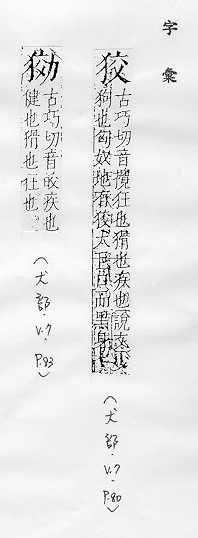 字彙
狡
古巧切音攪狂也猾也疾也說文少
狗也匈奴地有狡犬巨口而黑身
(犬部.V.7.P.80)
㺒
古巧切音皎疾也
健也猾也狂也
(犬部.V.7.P.83)